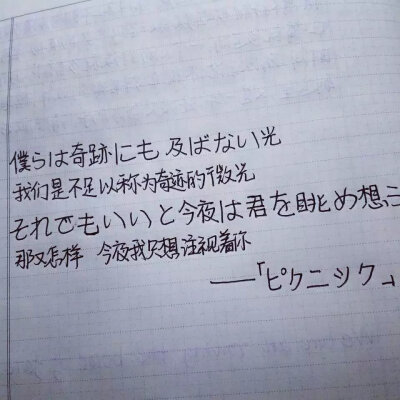 僕らは奇跡にも及ばない光
我们是不足以称为奇迹的微光
それでもいいと今夜は君を眺め想う
那又怎样 今夜我只想注视着你
——「ピクニック」